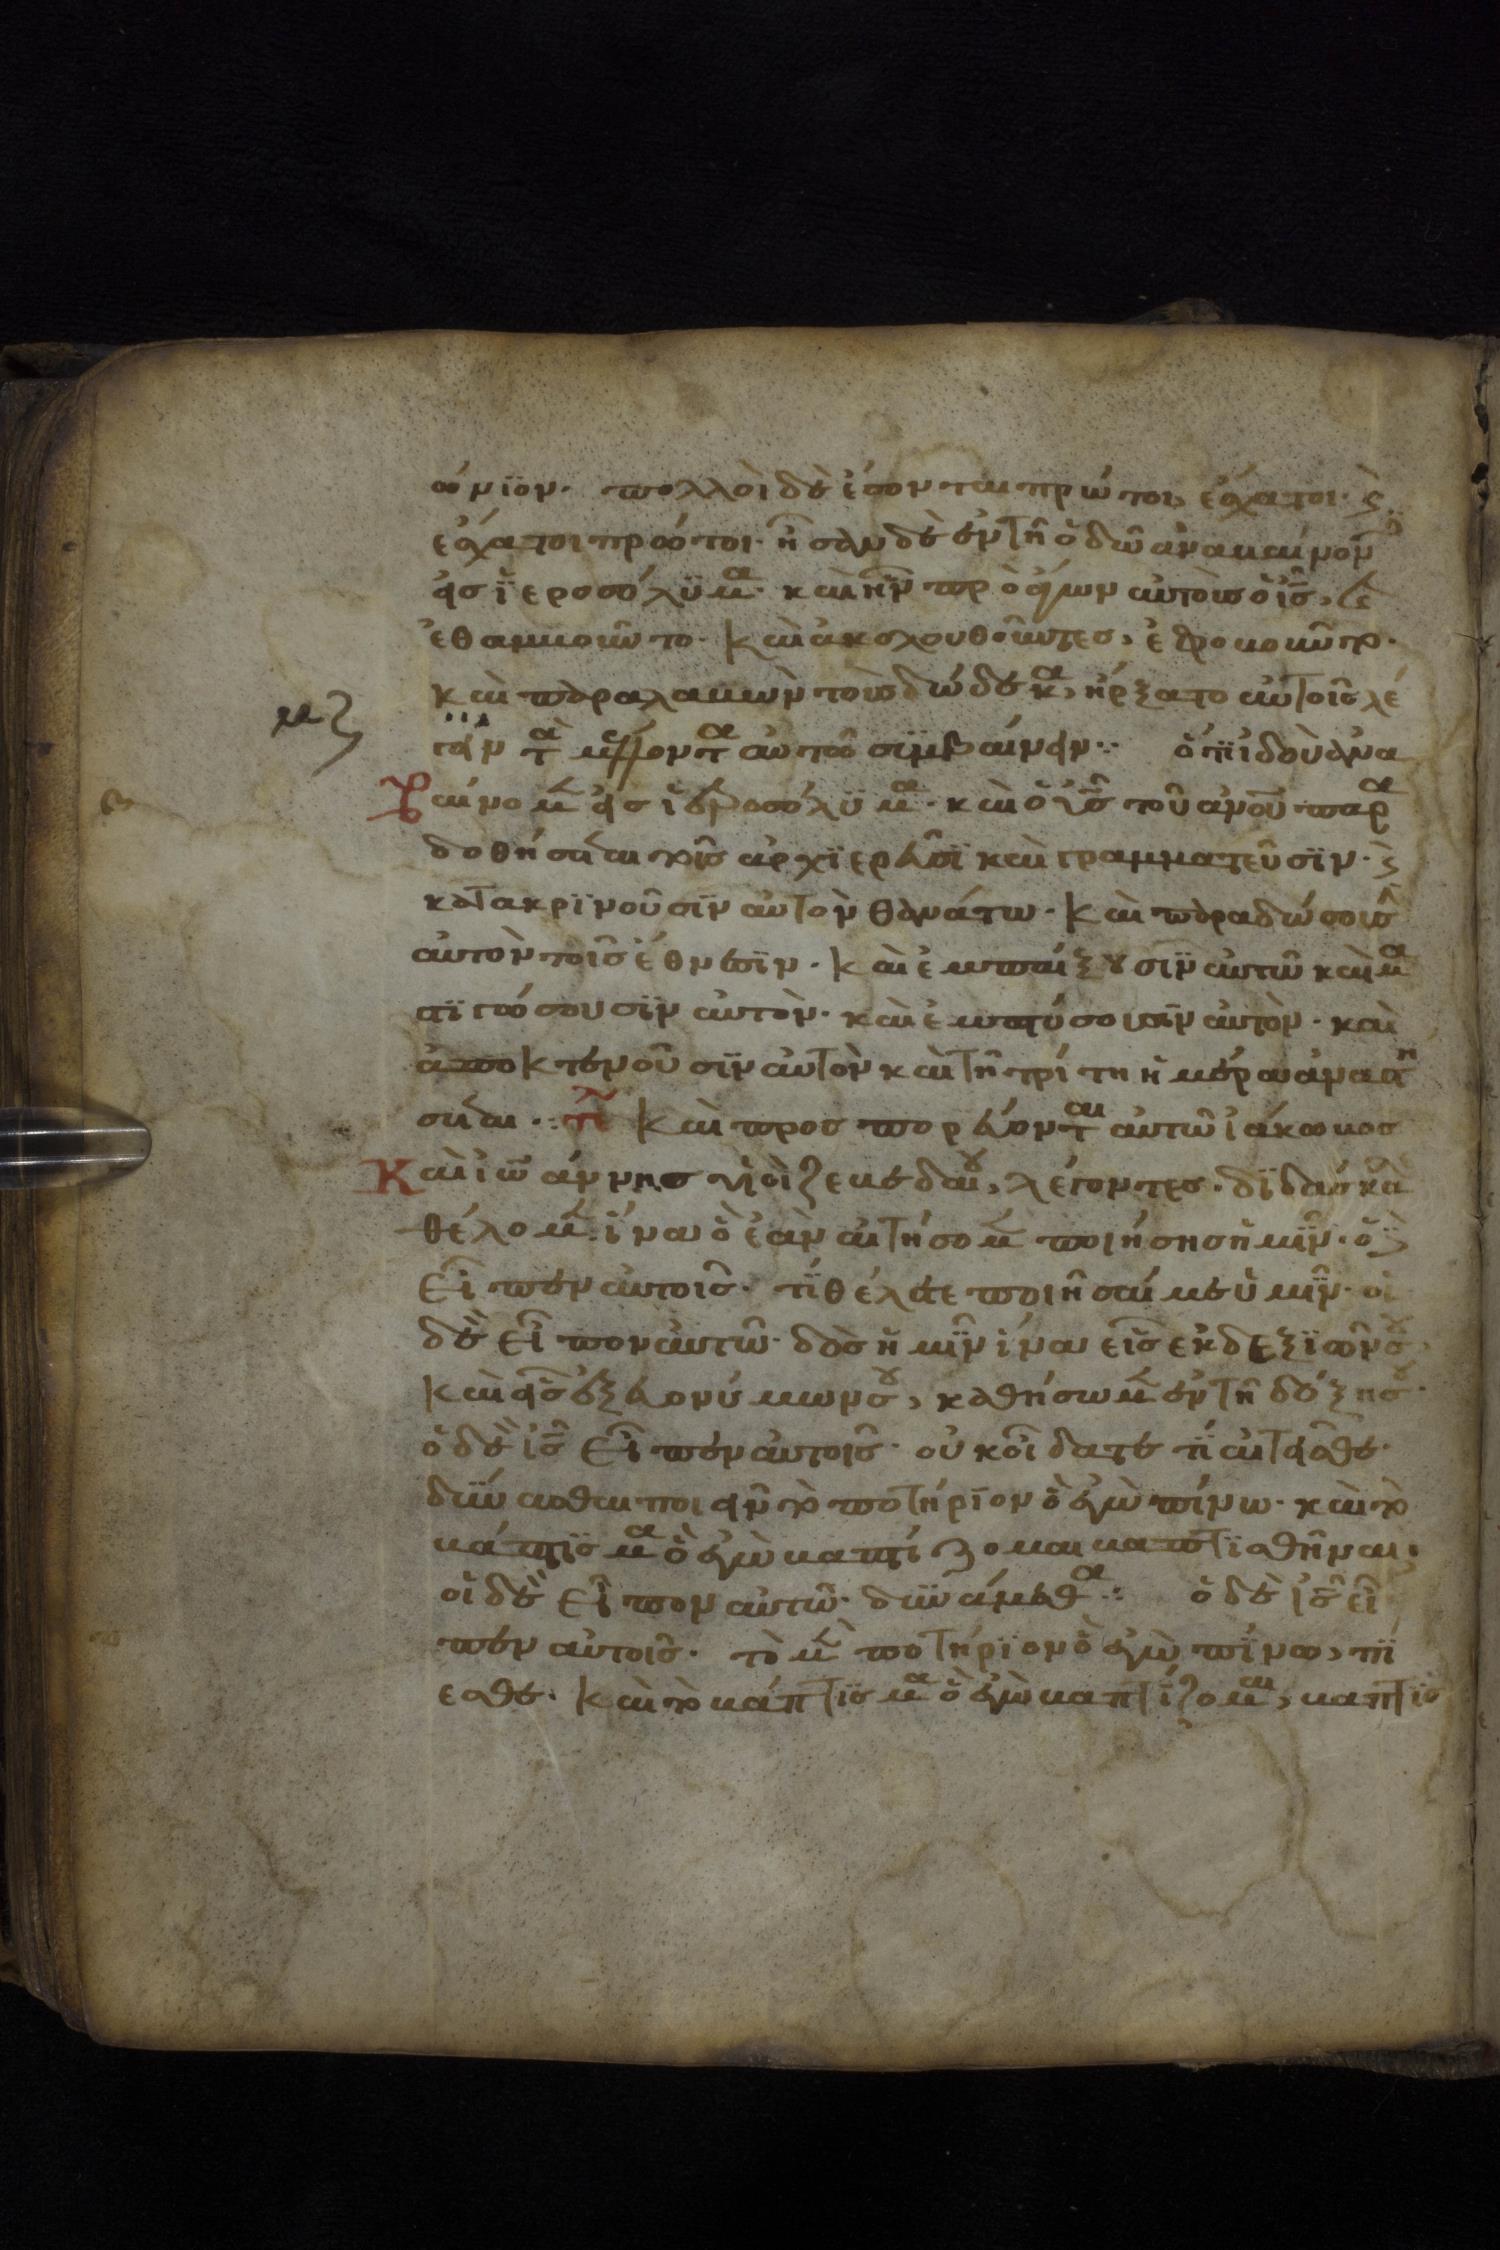 ώνϊον· πολλοὶ δὲ ἔσονται πρώτοι, ἔσχατοι· ϗ
ἔσχατοι πρώτοι· ἦσαν δὲ ἐν τῆ ὁδῶ ἀναβαίνον
εἰς ϊεροσόλϋμα· καὶ ἦν προάγων αὐτοὺσ ὁ ἰς̄, ϗ
ἐθαμβοῦντο· Καὶ ἀκολουθοῦντεσ, ἐφοβοῦντο·
καὶ παραλαβὼν τοὺσ δώδεκα, ἤρξατο αὐτοῖσ λέ
μζ
γειν τὰ μέλλοντα αὐτῶ σϋμβαίνειν·: ὅτι ἰδοὺ ἀνα
βαίνομεν εἰσ ἱεροσόλϋμα· καὶ ὁ ϋς̄ τοῦ ἀνου παρα
δοθήσεται τοῖσ ἀρχϊερεῦσϊ καὶ γραμματεῦσϊν· ϗ
κατακρϊνοῦσϊν αὐτὸν θανάτω· Καὶ παραδώσουσ
αὐτὸν τοῖσ ἔθνεσϊν· Καὶ ἐμπαίξουσϊν αὐτῶ καὶ μα
στϊγώσουσϊν αὐτὸν· καὶ ἐμπτύσουσϊν αὐτὸν· καὶ
ἀποκτενοῦσϊν αὐτὸν καὶ τῆ τρίτη ἡμέρα ἀναστη
σεται·: τλ Καὶ προσπορεύονται αὐτῶ ἰάκωβοσ
Καὶ ἰωάννησ υἱοὶ ζεβεδαίου, λέγοντεσ· δϊδάσκαλε
θέλομεν ἵνα ὃ ἐὰν αἰτήσομεν ποιήσησ ἡμῖν· ὁ δὲ
εἶπεν αὐτοῖσ· τί θέλετε ποιῆσαί με ὑμῖν· οἱ
δὲ εἶπον αὐτῶ· δὸσ ἡμῖν ἵνα εἷσ ἐκ δεξϊῶν σου
Καὶ εἷσ ἐξ εὐονύμων σου, καθήσωμεν ἐν τῆ δόξη σου·
ὁ δὲ ἰς̄ εἶπεν αὐτοῖσ· οὐκ οἴδατε τί αἰτεῖσθε·
δύνασθαι πιεῖν τὸ ποτήρϊον ὃ ἐγὼ πίνω· καὶ τὸ
βάπτϊσμα ὃ ἐγὼ βαπτίζομαι βαπτϊσθῆναι·
οἱ δὲ εἶπον αὐτῶ· δϋνάμεθα·: ὁ δὲ ἰς̄ εἶ
πεν αὐτοῖσ· τὸ μὲν ποτήρϊον ὃ ἐγὼ πίνω, πί
εσθε· Καὶ τὸ βάπτϊσμα ὃ ἐγὼ βαπτίζομαι, βαπτϊσ